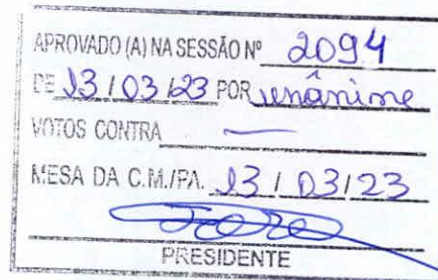 APROVADO (A) NA SESSÃO Nº 2094
DE 13/03/23 POR unânime
VOTOS CONTRA —
MESA DA C.M./PA. 13/03/23
PRESIDENTE